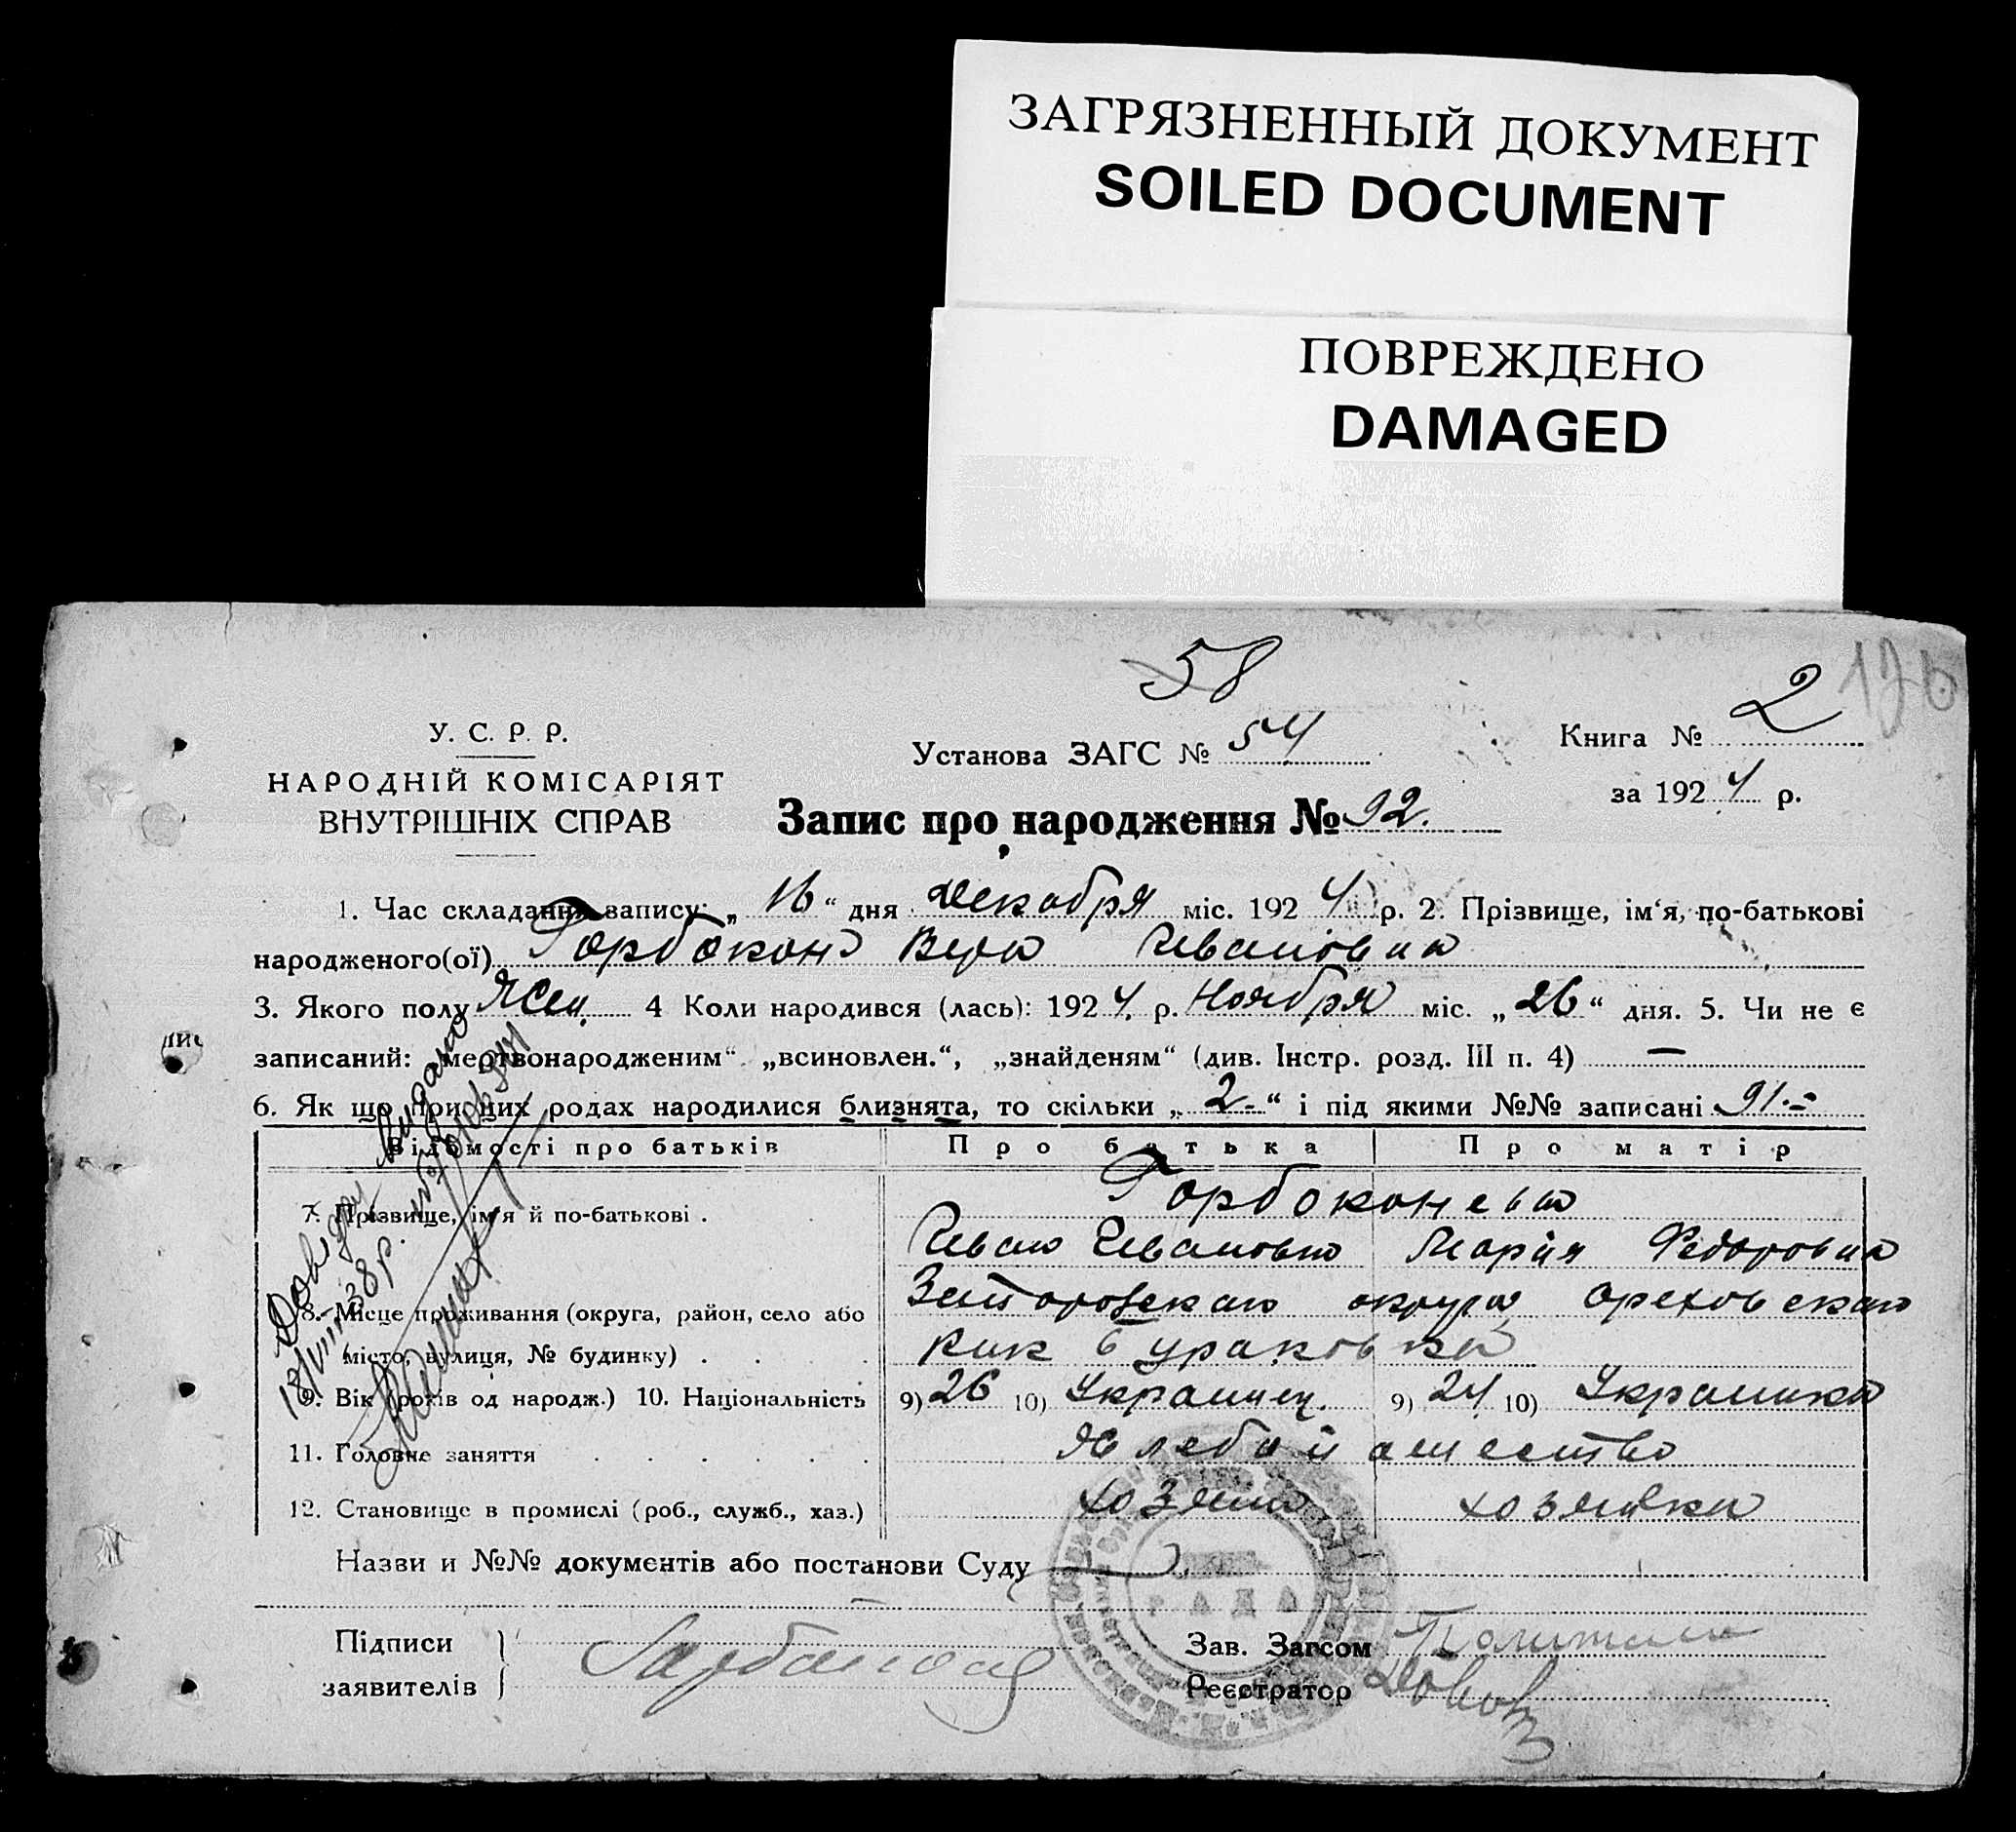 ЗАГРЯЗНЕННЫЙ ДОКУМЕНТ
SOILED DOCUMENT
ПОВРЕЖДЕНО
DAMAGED
58
2
У. С. Р. Р.
Установа ЗАГС № 54
Книга №
НАРОДНІЙ КОМІСАРІЯТ
за 1924 р.
ВНУТРІШНІХ СПРАВ
Запис про народження № 92.
1. Час складання запису: „16“ дня Декабря міс. 1924 р. 2. Прізвище, ім'я, по-батькові
народженого(ої) Горбоконь Вера Ивановна
3. Якого полу Жен. 4 Коли народився (лась): 1924. р. Ноября міс. „26“ дня. 5. Чи не є
записаний: „мертвонародженим“ „всиновлен.“, „знайденям“ (див. Інстр. розд. III п. 4) —
6. Як що при цих родах народилися близнята, то скільки „2-“ і під якими №№ записані 91.-
Відомості про батьків Про батька Про матір
Горбоконева
7. Прізвище, ім'я й по-батькові .
Иван Иванов Мария Федоровна
8. Місце проживання (округа, район, село або округа Ореховская
місто, вулиця, № будинку) . . . .
9. Вік (років од народж.) 10. Національність 9) 26 10) Украинец. 9) 24 10) Украинка
11. Головне заняття . . . . . . Хлебопашество
12. Становище в промислі (роб., служб., хаз.) хозяин хозяйка
Назви и №№ документів або постанови Суду —
РАДА
Підписи
заявителів
Зав. Загсом
Реєстратор
Довідку видано
18/VIII-38р.